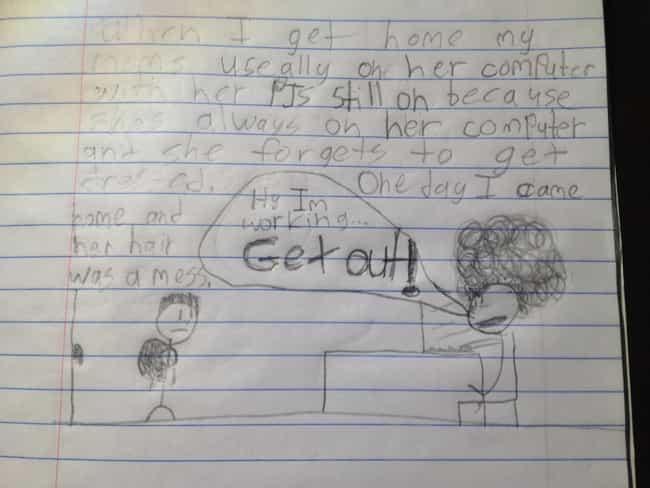 When I get home my
moms useally on her computer
with her PJs still on because
shes always on her computer
and she forgets to get
One day I came
home and
her hair
was a mess.
Hy Im
working...
Get out!